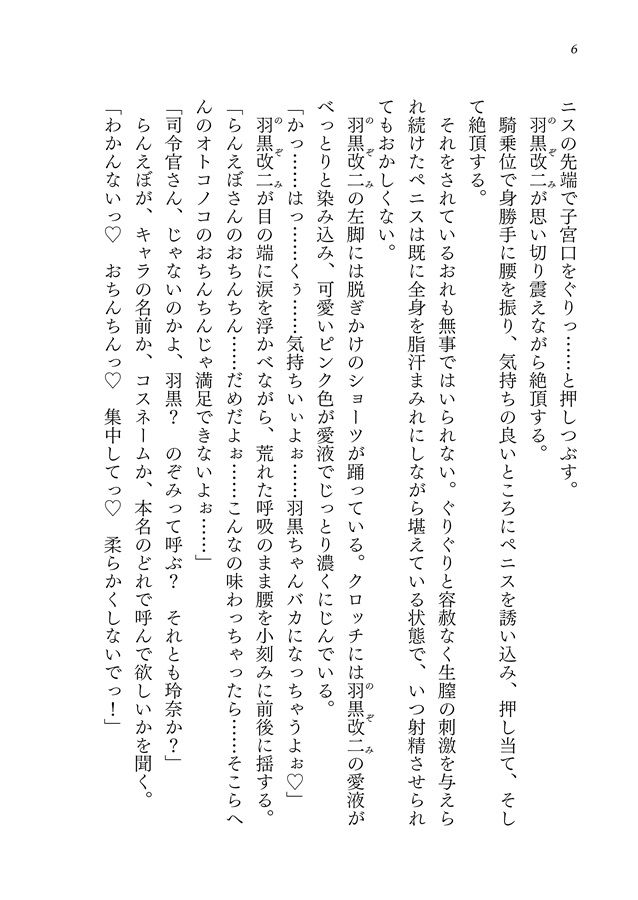 6
ニスの先端で子宮口をぐりっ……と押しつぶす。
のぞみ
羽黒改二が思い切り震えながら絶頂する。
騎乗位で身勝手に腰を振り、気持ちの良いところにペニスを誘い込み、押し当て、そし
て絶頂する。
それをされているおれも無事ではいられない。ぐりぐりと容赦なく生膣の刺激を与えら
れ続けたペニスは既に全身を脂汗まみれにしながら堪えている状態で、いつ射精させられ
てもおかしくない。
のぞみ
羽黒改二の左脚には脱ぎかけのショーツが踊っている。クロッチには羽黒改二の愛液が
のぞみ
べっとりと染み込み、可愛いピンク色が愛液でじっとり濃くにじんでいる。
「かっ……はっ……くぅ……気持ちいぃよぉ……羽黒ちゃんバカになっちゃうよぉ♡」
のぞみ
羽黒改二が目の端に涙を浮かべながら、荒れた呼吸のまま腰を小刻みに前後に揺する。
「らんえぼさんのおちんちん……だめだよぉ……こんなの味わっちゃったら……そこらへ
んのオトコノコのおちんちんじゃ満足できないよぉ……」
「司令官さん、じゃないのかよ、羽黒？　のぞみって呼ぶ？　それとも玲奈か？」
らんえぼが、キャラの名前か、コスネームか、本名のどれで呼んで欲しいかを聞く。
「わかんないっ♡　おちんちんっ♡　集中してっ♡　柔らかくしないでっ！」